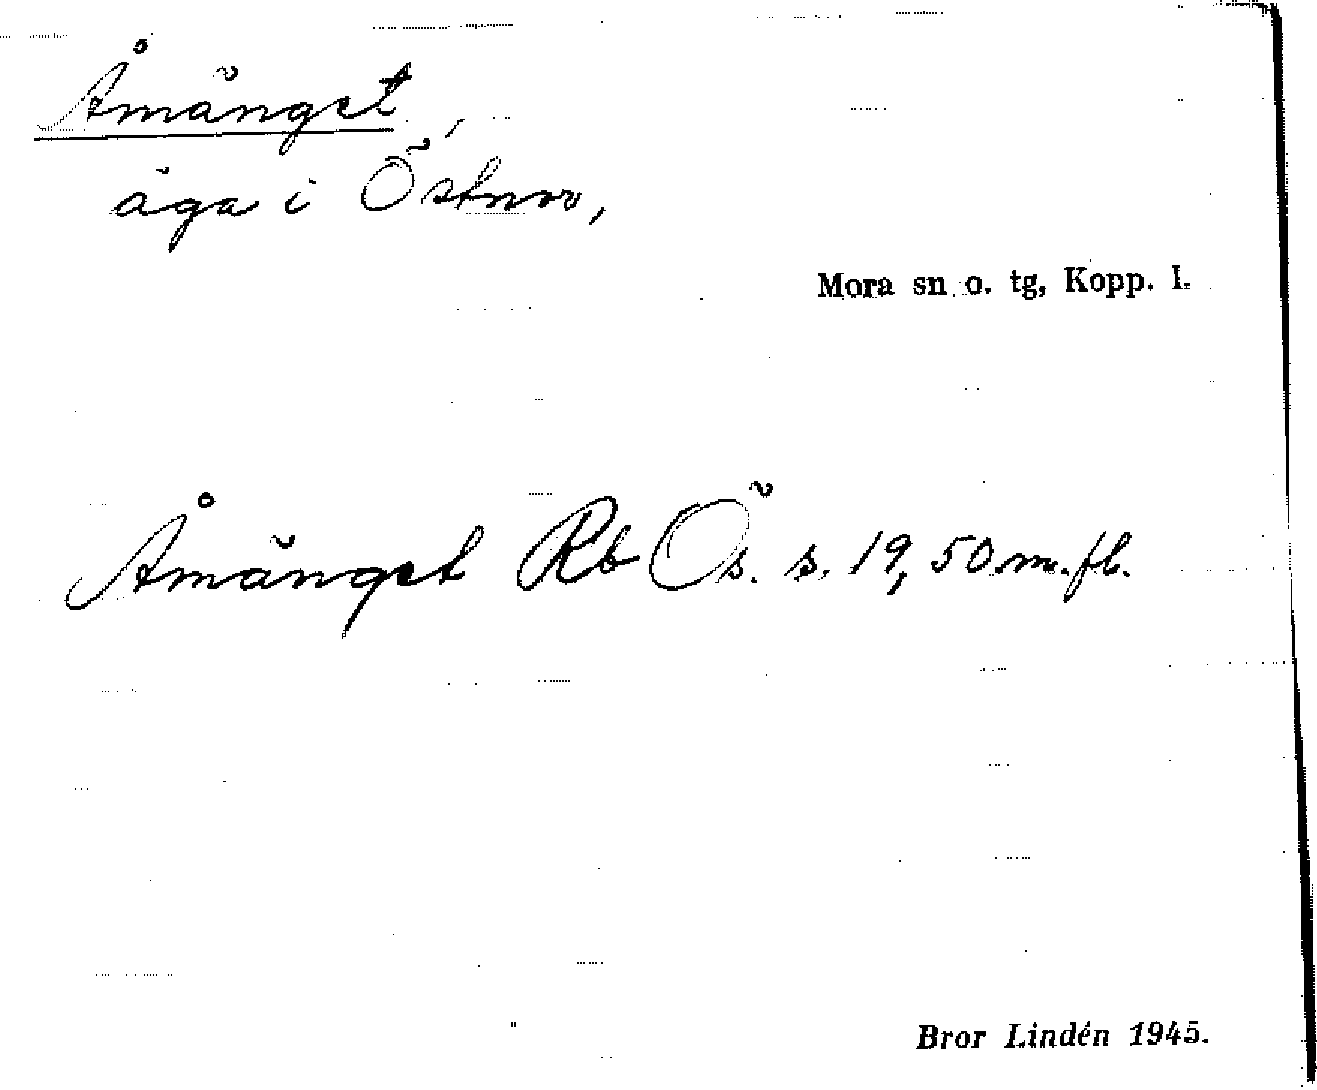 Åmänget
äga i Östnor,
Mora sn o. tg, Kopp. l.
Åmänget Rb Ös. s. 19, 50 m. fl.
Bror Lindén 1945.